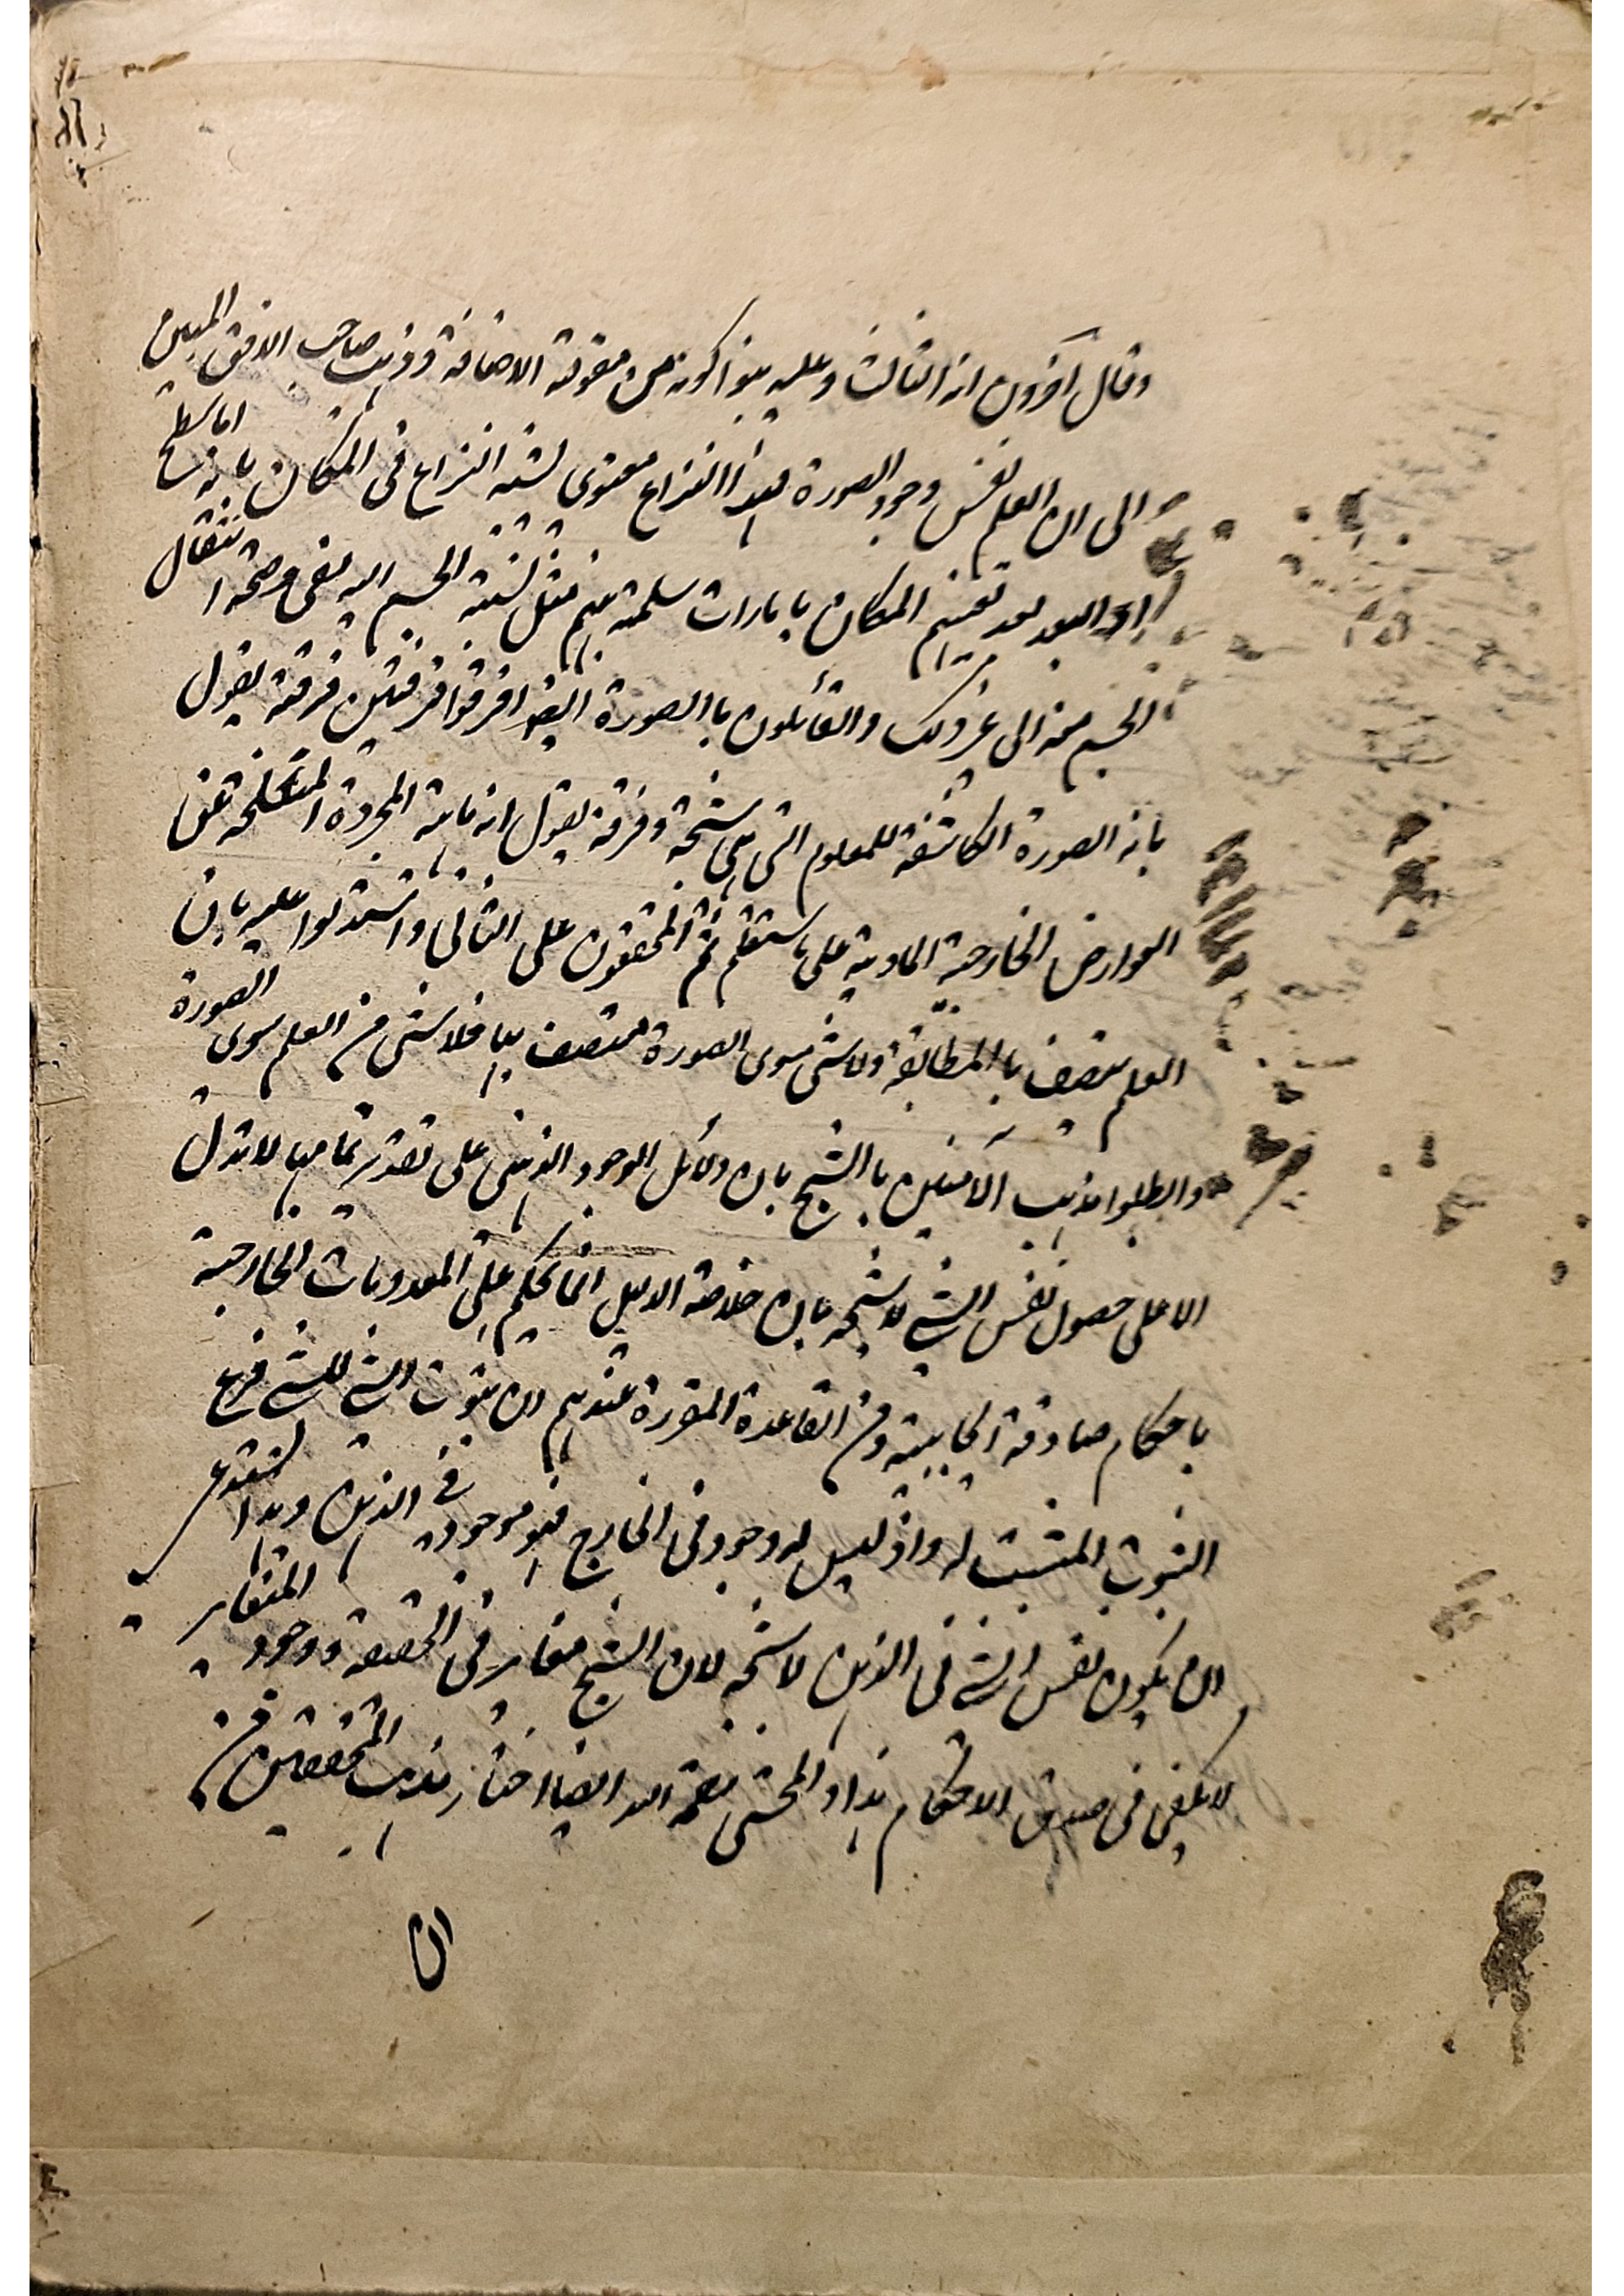 وقال آخرون انه الثالث وعليه بنوا كونه من مقولة الاضافة وذهب صاحب الافق المبين
الى ان العلم نفس وجود الصورة فهذا النزاع معنوى يشبه النزاع فى المكان بانه اما سطح
او البعد بعد تعيينهم المكان بامارات مسلمة بينهم مثل نسبة الجسم اليه بفى وصحة انتقال
الجسم منه الى غير ذلك والقائلون باالصورة ايضا افرقوا فرقتين فرقة يقول
بانه الصورة الكاشفة للمعلوم التى هى شبحه وفرقة يقول انه ماهية المجردة المنسلخة عن
العوارض الخارجية المادية على ما ستعلم ثم المحققون على الثانى واستدلوا عليه بان
العلم يتصف باالمطابقة ولا شى سوى الصورة متصف بها فلا شى من العلم سوى الصورة
وابطلوا مذهب القائلين باالشبح بان دلائل الوجود الذهنى على تقدير تمامها لا تدل
الا على حصول نفس الشئ لا شبحه بان خلاصة الدليل انا نحكم على المعدومات الخارجية
باحكام صادقة ايجابية ومن القاعدة المقررة عندهم ان ثبوت الشئ للشئ فرع
الثبوت المثبت له واذ ليس له وجود فى الخارج فهو موجود فى الذهن وهذا يستدعى
ان يكون نفس الشئ فى الذهن لا شبحه لان الشبح مغاير فى الحقيقة ووجود المتغاير
لا يكفى فى صدق الاحكام هذا والمحشى رحمه الله ايضا اختار مذهب المحققين من
ان